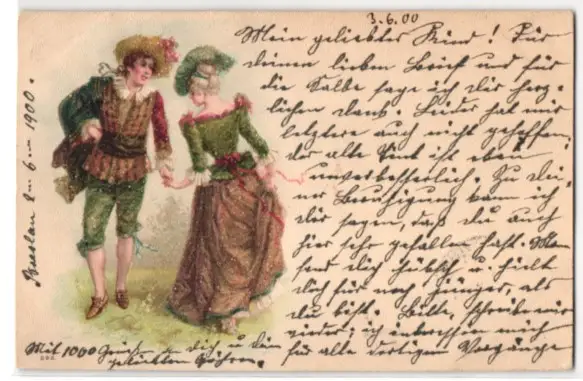 3.6.00
Mein geliebtes Kind! Für
deinen lieben Brief und für
die Salbe sage ich dir herz-
lichen Dank. Leider hat mir
letztere auch nicht geholfen,
der alte ist eben
unverbesserlich. Zu dei-
ner Beruhigung kann ich
dir sagen, daß du auch
hier sehr gefallen hast. Man
fand dich hübsch u. hielt
dich für noch jünger, als
du bist. Bitte, schreibe mir
wieder; ich interessire mich
für alle dortigen Vorgänge
Breslau 2 6 1900.
Mit 1000 Grüßen an dich u die
geliebten Göhren.